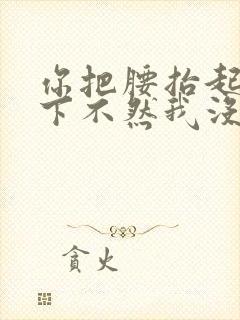 你把腰抬起
下不然我没
贪火